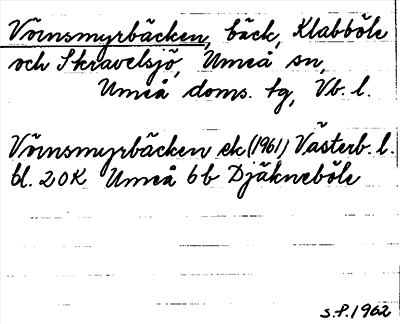 Vörnsmyrbäcken, bäck, Klabböle
och Skravelsjö, Umeå sn,
Umeå doms. tg, Vb. l.
Vörnsmyrbäcken ek (1961) Västerb. l.
bl. 20K Umeå 6b Djäkneböle
S.P. 1962